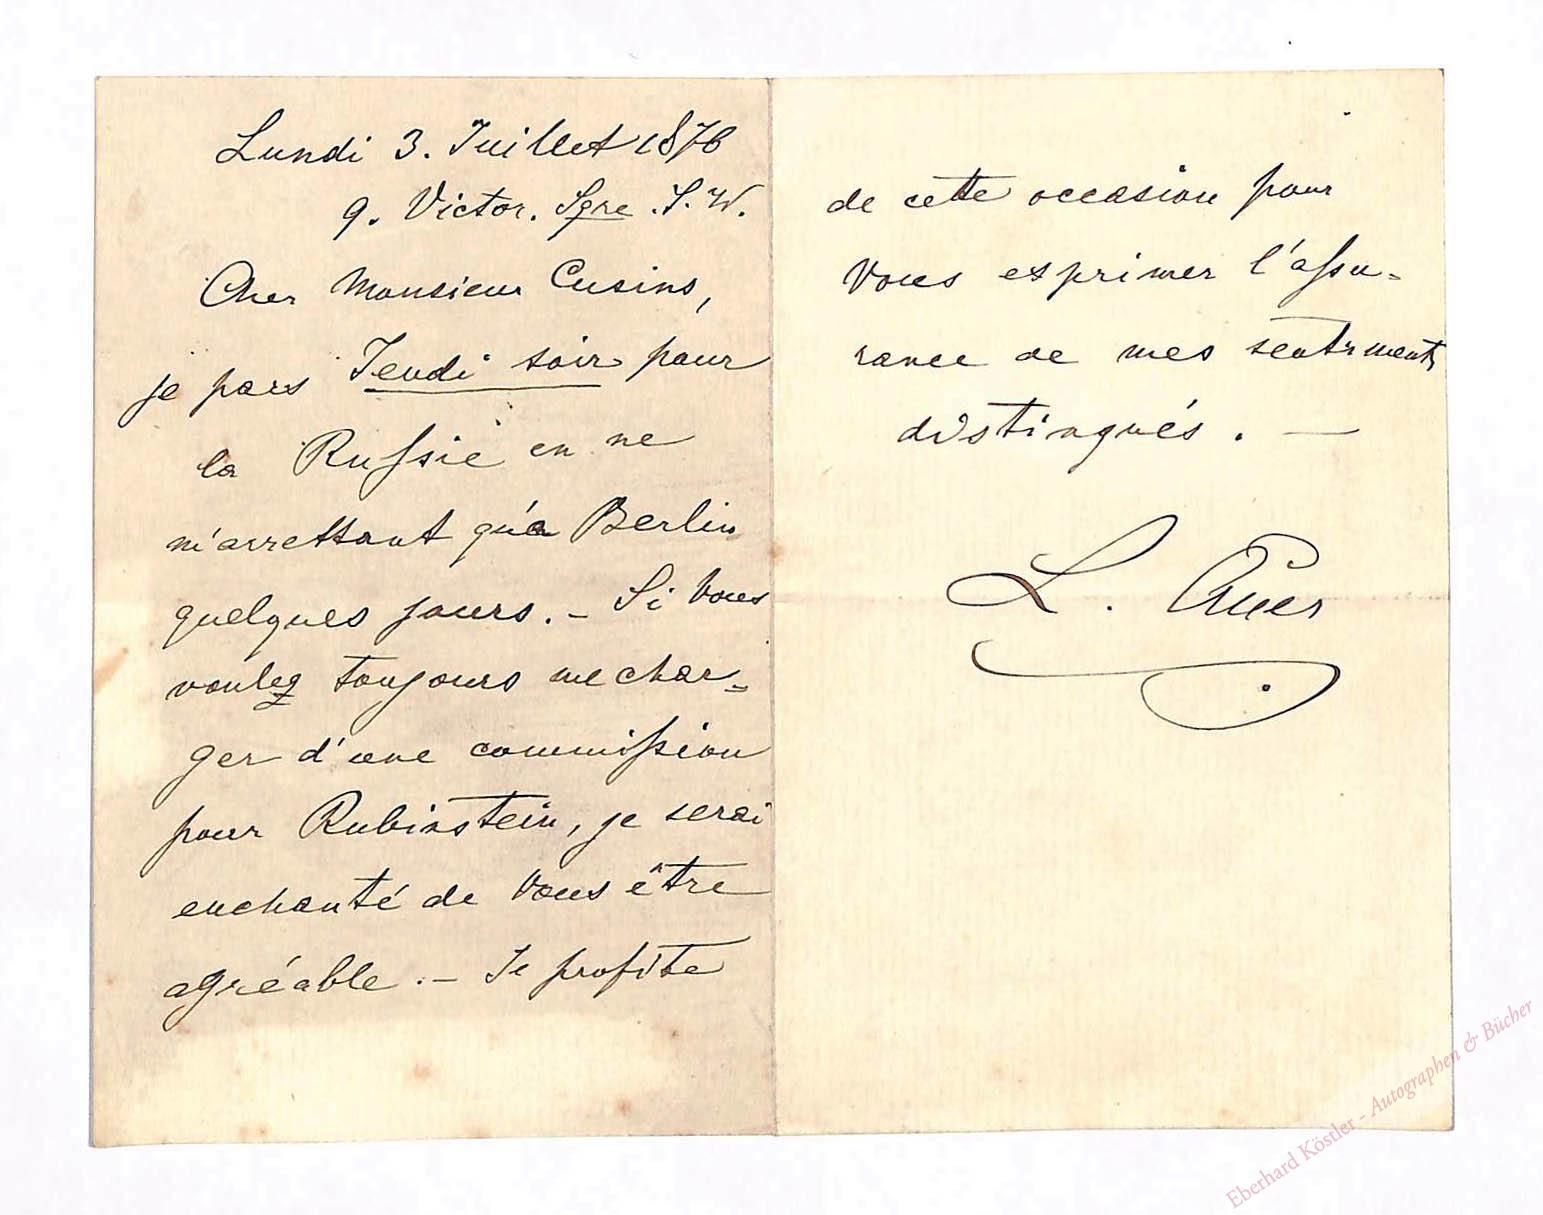 Lundi 3. Juillet 1876
9. Victor. Sqre. S. W.
Cher Monsieur Cusins,
je pars Jeudi soir pour
la Russie en ne
m'arrettant qu'a Berlin
quelques jours. – Si Vous
voulez toujours me char=
ger d'une commission
pour Rubinstein, je serai
enchanté de Vous être
agréable. – Je profite
de cette occasion pour
Vous exprimer l'assu=
rance de mes sentiments
distingués. —
L. Auer
Eberhard Köstler - Autographen & Bücher